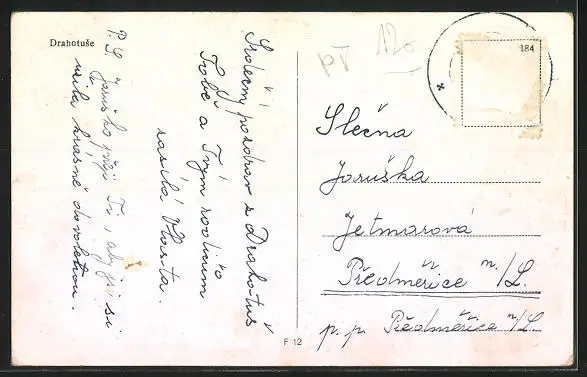 Drahotuše
Srdečný pozdrav z Drahotuš
Tobě a Tvým rodičům
zasílá Vlasta.
P.S. Jaruško, přeji Ti, aby jsi si
užila krásně dovolenou.
120
184
Slečna
Jaruška
Jetmarová
Předměřice n./L.
p. p. Předměřice n/L.
F 12